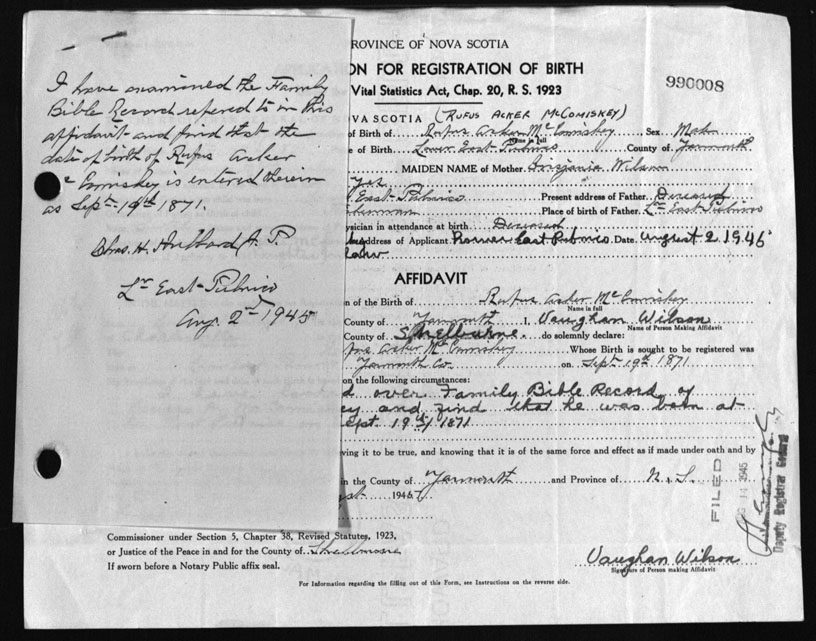 I have examined the Family
Bible Record refered to in this
affidavit and find that the
date of birth of Rufus Acker
Comiskey is entered therein
as Sept. 19th 1871.
Chas. H. Hubbard J. P.
Lr East Pubnico
Aug. 2nd 1945
ROVINCE OF NOVA SCOTIA
ON FOR REGISTRATION OF BIRTH
Vital Statistics Act, Chap. 20, R. S. 1923
990008
OVA SCOTIA (RUFUS ACKER McCOMISKEY)
of Birth of Rufus Acker McComiskey Sex Male
Name in full
e of Birth Lower East Pubnico County of Yarmouth
MAIDEN NAME of Mother Wilson
Yes
East Pubnico Present address of Father Deceased
Place of birth of Father Lr East Pubnico
ysician in attendance at birth Deceased
Address of Applicant Lower East Pubnico Date August 2 1945
AFFIDAVIT
n of the Birth of Rufus Acker McComiskey
Name in full
County of Yarmouth I, Vaughan Wilson
Name of Person Making Affidavit
County of Shelburne do solemnly declare:
Acker McComiskey Whose Birth is sought to be registered was
Yarmouth Co. on Sept 19th 1871
n the following circumstances:
d over Family Bible Record of
ey and find that he was born at
ept. 19th 1871
eving it to be true, and knowing that it is of the same force and effect as if made under oath and by
in the County of Yarmouth and Province of N. S.
194
Commissioner under Section 5, Chapter 38, Revised Statutes, 1923,
or Justice of the Peace in and for the County of Shelburne
If sworn before a Notary Public affix seal.
Vaughan Wilson
Signature of Person making Affidavit
For Information regarding the filling out of this Form, see Instructions on the reverse side.
FILED
14 1945
Deputy Registrar General